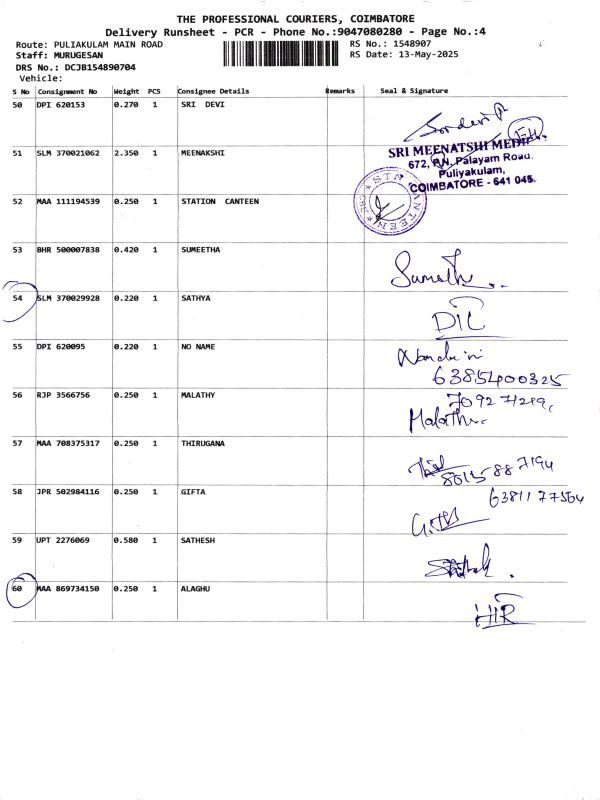 THE PROFESSIONAL COURIERS, COIMBATORE
Delivery Runsheet - PCR - Phone No.:9047080280 - Page No.:4
Route: PULIAKULAM MAIN ROAD RS No.: 1548907
Staff: MURUGESAN RS Date: 13-May-2025
DRS No.: DCJB154890704
Vehicle:
S No Consignment No Weight PCS Consignee Details Remarks Seal & Signature
50 DPI 620153 0.270 1 SRI DEVI
51 SLM 370021062 2.350 1 MEENAKSHI
SRI MEENATSHI
672, P.N. Palayam Road.
Puliyakulam,
COIMBATORE - 641 045.
52 MAA 111194539 0.250 1 STATION CANTEEN
53 BHR 500007838 0.420 1 SUMEETHA
54 SLM 370029928 0.220 1 SATHYA
DIL
55 DPI 620095 0.220 1 NO NAME
6385400325
56 RJP 3566756 0.250 1 MALATHY
57 MAA 708375317 0.250 1 THIRUGANA
58 JPR 502984116 0.250 1 GIFTA
59 UPT 2276069 0.580 1 SATHESH
60 MAA 869734150 0.250 1 ALAGHU